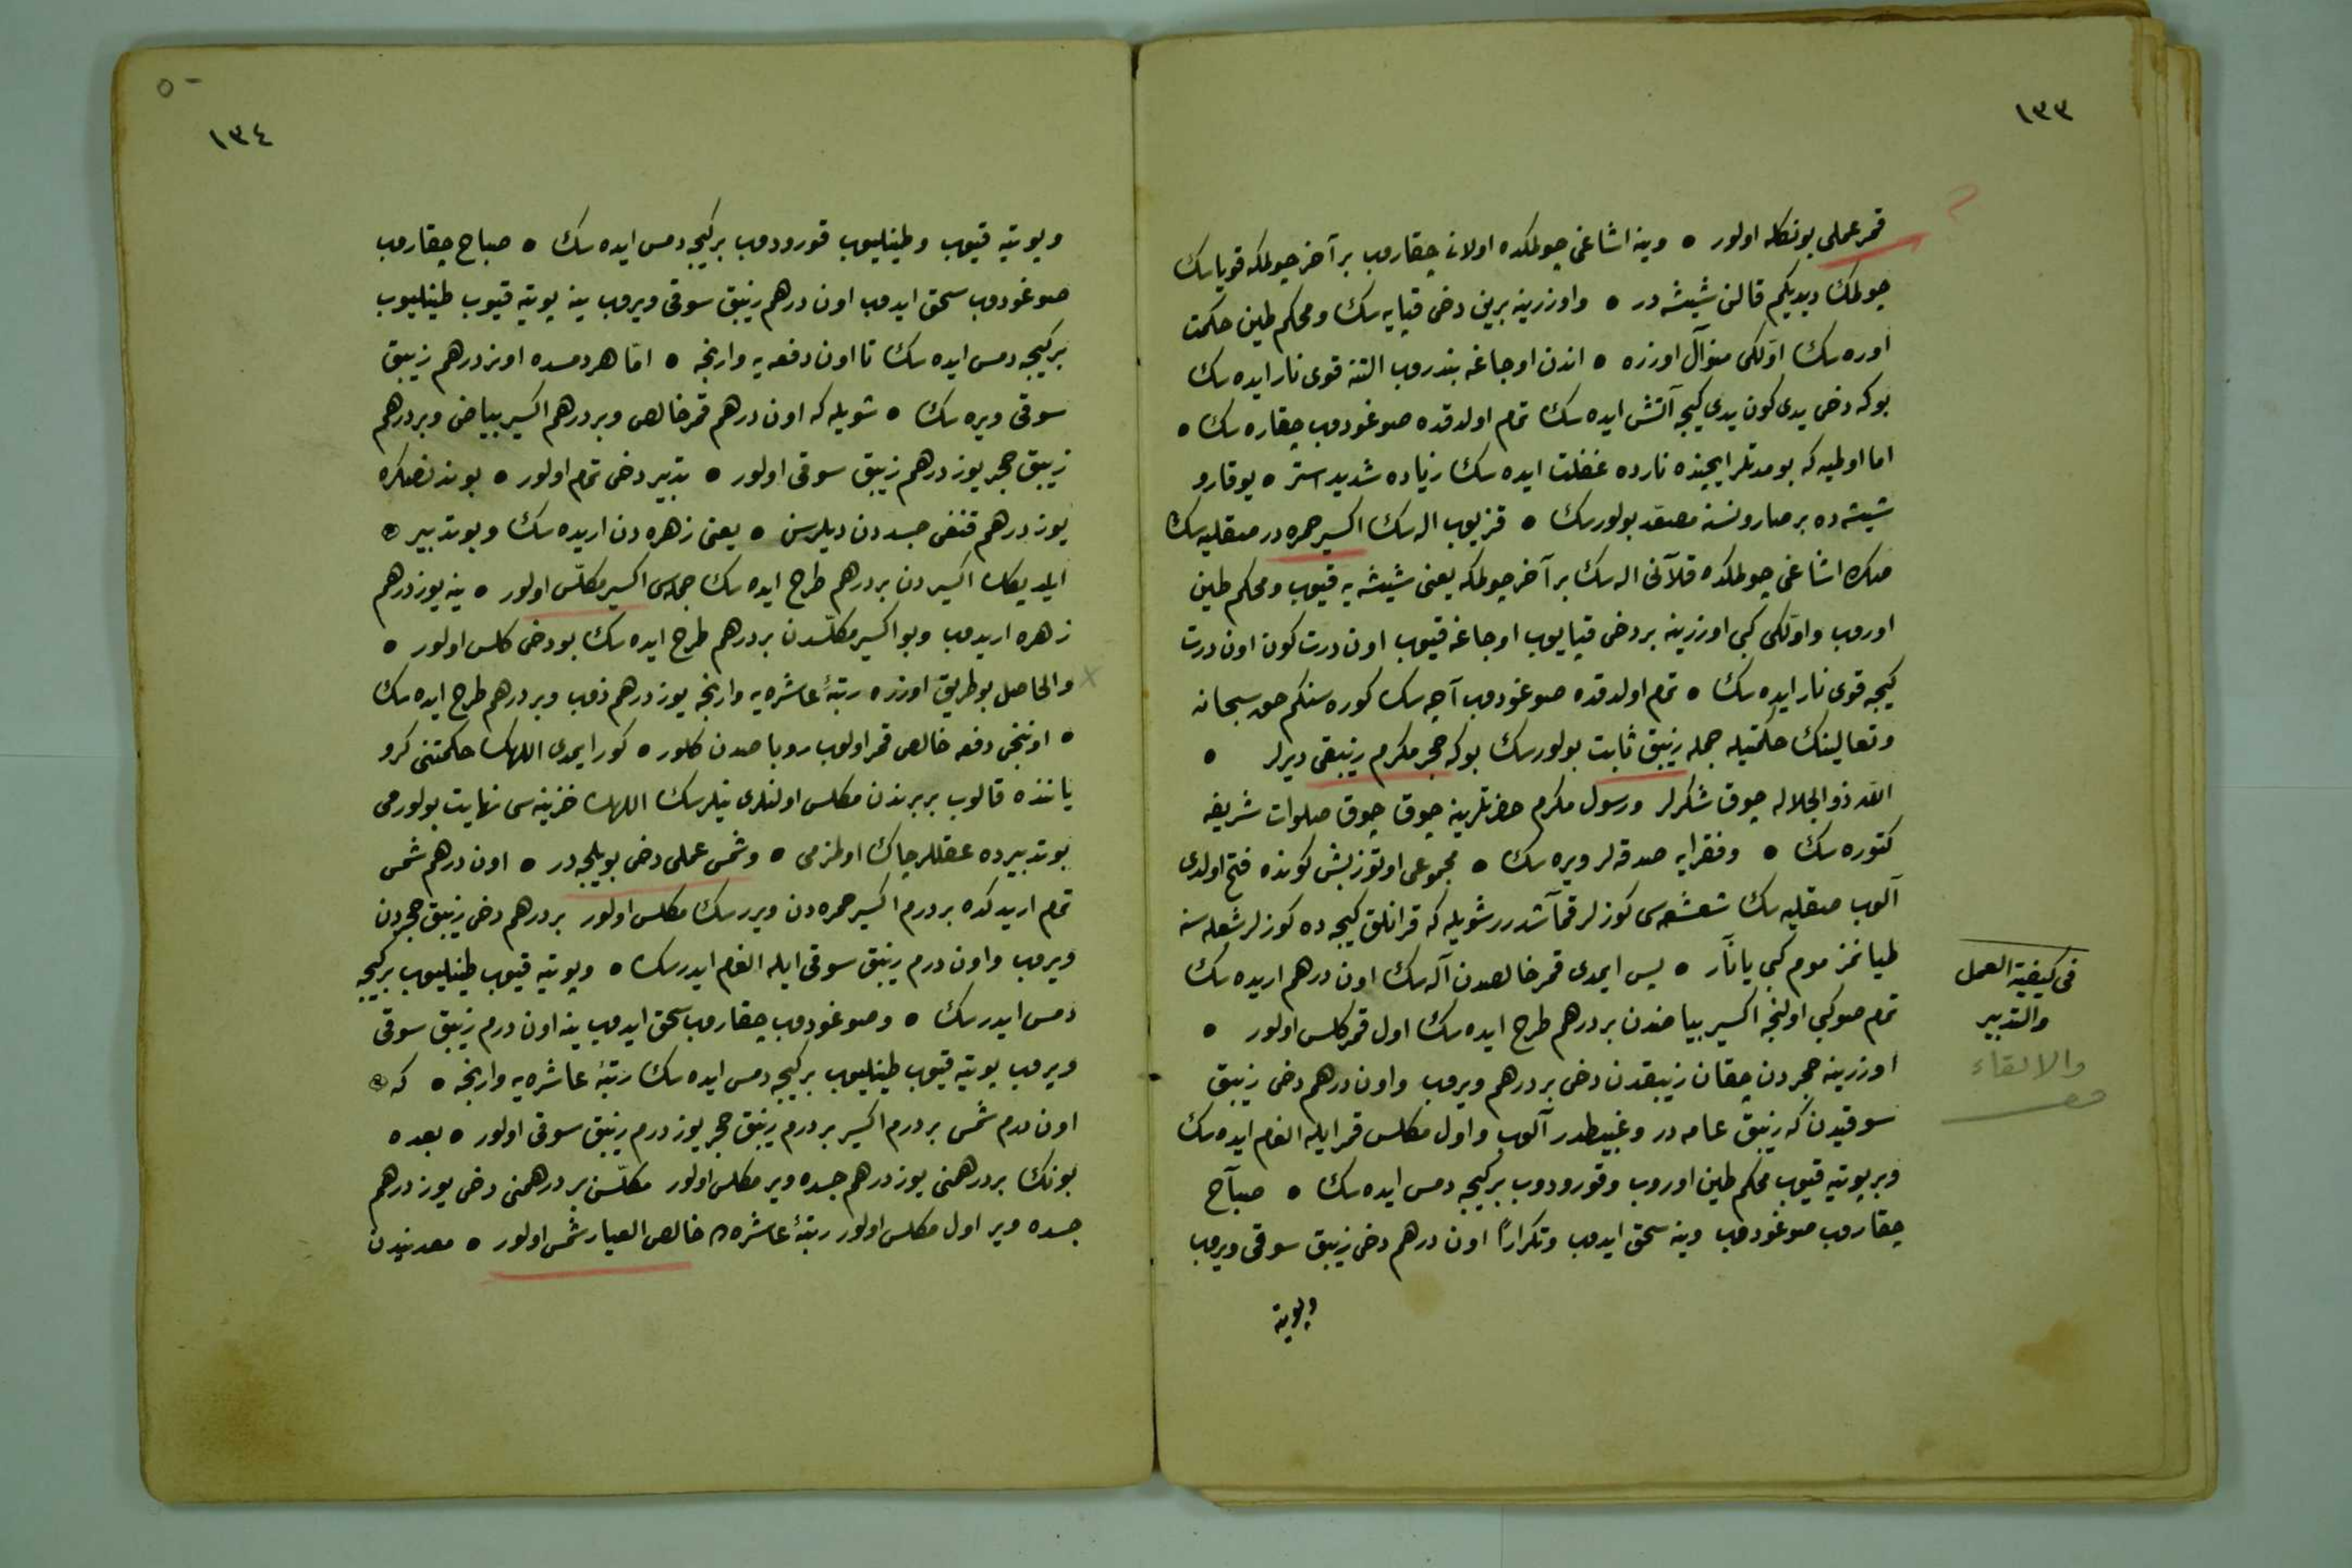 ١٣٣
قمر عملی بونكله اولور • وینه اشاغی چولمكده اولانی چقاروب بر آخر چولمكه قویاسك
چولمك دیدیكم قالن شیشه در • واوزرینه برین دخی قپایه سك ومحكم طین حكمت
اوره سك اوّلكی منوال اوزره • اندن اوجاغه بندروب التنه قوی نار ایده سك
بوكه دخی یدی كون یدی كیجه آتش ایده سك تمام اولدقده صوغودوب چقاره سك •
اما اولمیه كه بو مدتلر ایچینده نارده غفلت ایده سك زیاده شدید استر • یوقارو
شیشه ده بر صارو نسنه مصعّد بولورسك • قزیوب اله سك اكسیر حمره در صقلیه سك
صكره اشاغی چولمكده قلآنی اله سك بر آخر چولمكه یعنی شیشه یه قیوب ومحكم طین
اوروب واوّلكی كبی اوزرینه بر دخی قپایوب اوجاغه قیوب اون درت كون اون درت
كیجه قوی نار ایده سك • تمام اولدقده صوغودوب آچه سك كوره سنكم حق سبحانه
وتعالینك حكمتیله جمله زیبق ثابت بولورسك بوكه حجر مكرم زیبقی دیرلر •
الله ذو الجلاله چوق شكرلر ورسول مكرم حضرتلرینه چوق چوق صلوات شریفه
كتوره سك • وفقرایه صدقه لر ویره سك • مجموعی اوتوز بش كونده فتح اولدی
آلوب صقلیه سك شعشعه سی كوزلر قمآشدرر شویله كه قرانلق كیجه ده كوزلر شعله سنه
طیانمز موم كبی یانآر • پس ایمدی قمر خالصدن آله سك اون درهم اریده سك
تمام صو كبی اولنجه اكسیر بیاضدن بر درهم طرح ایده سك اول قمر كلس اولور •
اوزرینه حجردن چقان زیبقدن دخی بر درهم ویروب واون درهم دخی زیبق
سوقیدن كه زیبق عامه در وغبیطدر آلوب واول مكلس قمر ایله الغام ایده سك
وبر پوتیه قیوب محكم طین اوروب وقورودوب بر كیجه دمس ایده سك • صبآح
چقاروب صوغودوب وینه سحق ایدوب وتكراراً اون درهم دخی زیبق سوقی ویروب
وپوتیه
فی كیفیة العمل
والتدبیر
والالقاء
١٣٤
وپوتیه قیوب وطینلیوب قورودوب بر كیجه دمس ایده سك • صباح چقاروب
صوغودوب سحق ایدوب اون درهم زیبق سوقی ویروب ینه پوتیه قیوب طینلیوب
بر كیجه دمس ایده سك تا اون دفعه یه وارنجه • امّا هر دمسده اونر درهم زیبق
سوقی ویره سك • شویله كه اون درهم قمر خالص وبر درهم اكسیر بیاضی وبر درهم
زیبق حجر یوز درهم زیبق سوقی اولور • تدبیر دخی تمام اولور • بوندنصكره
یوز درهم قنغی جسددن دیلرسن • یعنی زهره دن اریده سك وبو تدبیر
ایلدیكك اكسیردن بر درهم طرح ایده سك جمله سی اكسیر مكلّس اولور • ینه یوز درهم
زهره اریدوب وبو اكسیر مكلّسدن بر درهم طرح ایده سك بو دخی كلس اولور •
والحاصل بو طریق اوزره رتبۀ عاشره یه وارنجه یوز درهم ذوب وبر درهم طرح ایده سك
• اوننجی دفعه خالص قمر اولوب روباصدن كلور • كور ایمدی اللهك حكمتنی كرو
یاننده قالوب بربرندن مكلس اولنلری نیلرسك اللهك خزینه سی نهایت بولورمی
بو تدبیرده عقللر چاك اولمزمی • وشمس عملی دخی بویلجه در • اون درهم شمس
تمام اریدكده بر درم اكسیر حمره دن ویررسك مكلس اولور بر درهم دخی زیبق حجردن
ویروب واون درم زیبق سوقی ایله الغام ایدرسك • وپوتیه قیوب طینلیوب بر كیجه
دمس ایدرسك • وصوغودوب چقاروب سحق ایدوب ینه اون درم زیبق سوقی
ویروب پوتیه قیوب طینلیوب بر كیجه دمس ایده سك رتبۀ عاشره یه وارنجه • كه
اون درم شمس بر درم اكسیر بر درم زیبق حجر یوز درم زیبق سوقی اولور • بعده
بونك بر درهمنی یوز درهم جسده ویر مكلس اولور مكلّسن بر درهمنی دخی یوز درهم
جسده ویر اول مكلس اولور رتبۀ عاشره ده خالص العیار شمس اولور • معدنیدن